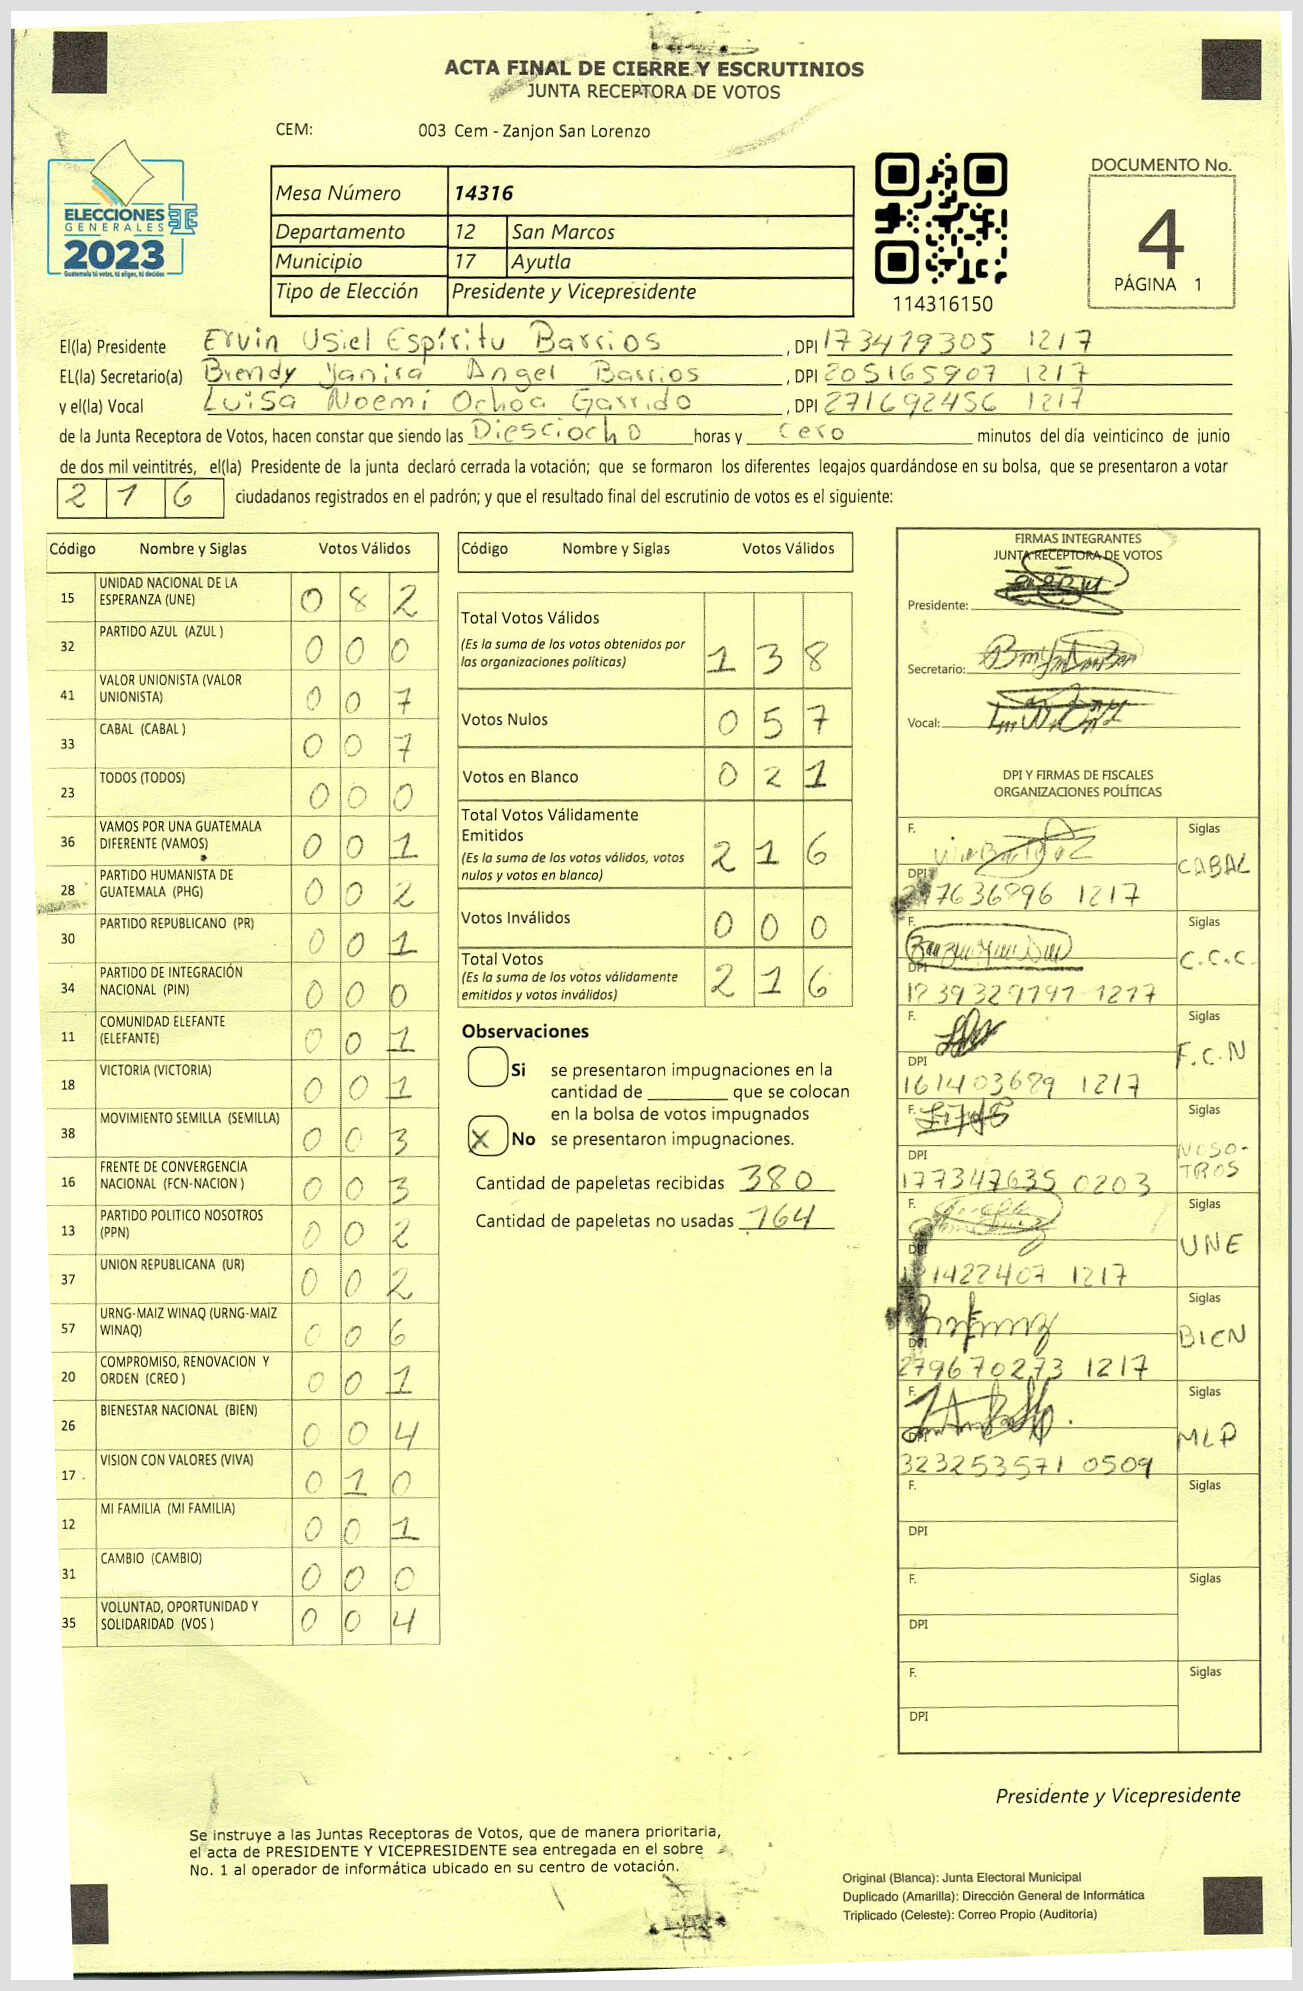 ACTA FINAL DE CIERRE Y ESCRUTINIOS
JUNTA RECEPTORA DE VOTOS
CEM: 003 Cem - Zanjon San Lorenzo
ELECCIONES
GENERALES
2023
Guatemala tú votas, tú eliges, tú decides
Mesa Número 14316
Departamento 12 San Marcos
Municipio 17 Ayutla
Tipo de Elección Presidente y Vicepresidente
114316150
DOCUMENTO No.
4
PÁGINA 1
El(la) Presidente Ervin Usiel Espíritu Barrios , DPI 173479305 1217
EL(la) Secretario(a) Brendy Yanira Angel Barrios , DPI 205165907 1217
y el(la) Vocal Luisa Noemi Ochoa Garrido , DPI 271692456 1217
de la Junta Receptora de Votos, hacen constar que siendo las Diesciocho horas y cero minutos del día veinticinco de junio
de dos mil veintitrés, el(la) Presidente de la junta declaró cerrada la votación; que se formaron los diferentes legajos guardándose en su bolsa, que se presentaron a votar
216 ciudadanos registrados en el padrón; y que el resultado final del escrutinio de votos es el siguiente:
Código Nombre y Siglas Votos Válidos
15 UNIDAD NACIONAL DE LA ESPERANZA (UNE) 0 8 2
32 PARTIDO AZUL (AZUL ) 0 0 0
41 VALOR UNIONISTA (VALOR UNIONISTA) 0 0 7
33 CABAL (CABAL ) 0 0 7
23 TODOS (TODOS) 0 0 0
36 VAMOS POR UNA GUATEMALA DIFERENTE (VAMOS) 0 0 1
28 PARTIDO HUMANISTA DE GUATEMALA (PHG) 0 0 2
30 PARTIDO REPUBLICANO (PR) 0 0 1
34 PARTIDO DE INTEGRACIÓN NACIONAL (PIN) 0 0 0
11 COMUNIDAD ELEFANTE (ELEFANTE) 0 0 1
18 VICTORIA (VICTORIA) 0 0 1
38 MOVIMIENTO SEMILLA (SEMILLA) 0 0 3
16 FRENTE DE CONVERGENCIA NACIONAL (FCN-NACION ) 0 0 3
13 PARTIDO POLITICO NOSOTROS (PPN) 0 0 2
37 UNION REPUBLICANA (UR) 0 0 2
57 URNG-MAIZ WINAQ (URNG-MAIZ WINAQ) 0 0 6
20 COMPROMISO, RENOVACION Y ORDEN (CREO ) 0 0 1
26 BIENESTAR NACIONAL (BIEN) 0 0 4
17 VISION CON VALORES (VIVA) 0 1 0
12 MI FAMILIA (MI FAMILIA) 0 0 1
31 CAMBIO (CAMBIO) 0 0 0
35 VOLUNTAD, OPORTUNIDAD Y SOLIDARIDAD (VOS ) 0 0 4
Código Nombre y Siglas Votos Válidos
Total Votos Válidos
(Es la suma de los votos obtenidos por
las organizaciones políticas) 1 3 8
Votos Nulos 0 5 7
Votos en Blanco 0 2 1
Total Votos Válidamente
Emitidos
(Es la suma de los votos válidos, votos
nulos y votos en blanco) 2 1 6
Votos Inválidos 0 0 0
Total Votos
(Es la suma de los votos válidamente
emitidos y votos inválidos) 2 1 6
Observaciones
Si se presentaron impugnaciones en la
cantidad de ________ que se colocan
en la bolsa de votos impugnados
X No se presentaron impugnaciones.
Cantidad de papeletas recibidas 380
Cantidad de papeletas no usadas 164
FIRMAS INTEGRANTES
JUNTA RECEPTORA DE VOTOS
Presidente:
Secretario:
Vocal:
DPI Y FIRMAS DE FISCALES
ORGANIZACIONES POLÍTICAS
F. Siglas
CABAL
DPI
1217
F. Siglas
C.C.C.
DPI
F. Siglas
F.C.N
DPI
161403689 1217
F. Siglas
NOSO-
TROS
DPI
177347635 0203
F. Siglas
UNE
DPI
1422407 1217
F. Siglas
BIEN
DPI
279670273 1217
F. Siglas
MLP
DPI
323253571 0509
F. Siglas
DPI
F. Siglas
DPI
F. Siglas
DPI
Presidente y Vicepresidente
Se instruye a las Juntas Receptoras de Votos, que de manera prioritaria,
el acta de PRESIDENTE Y VICEPRESIDENTE sea entregada en el sobre
No. 1 al operador de informática ubicado en su centro de votación.
Original (Blanca): Junta Electoral Municipal
Duplicado (Amarilla): Dirección General de Informática
Triplicado (Celeste): Correo Propio (Auditoría)